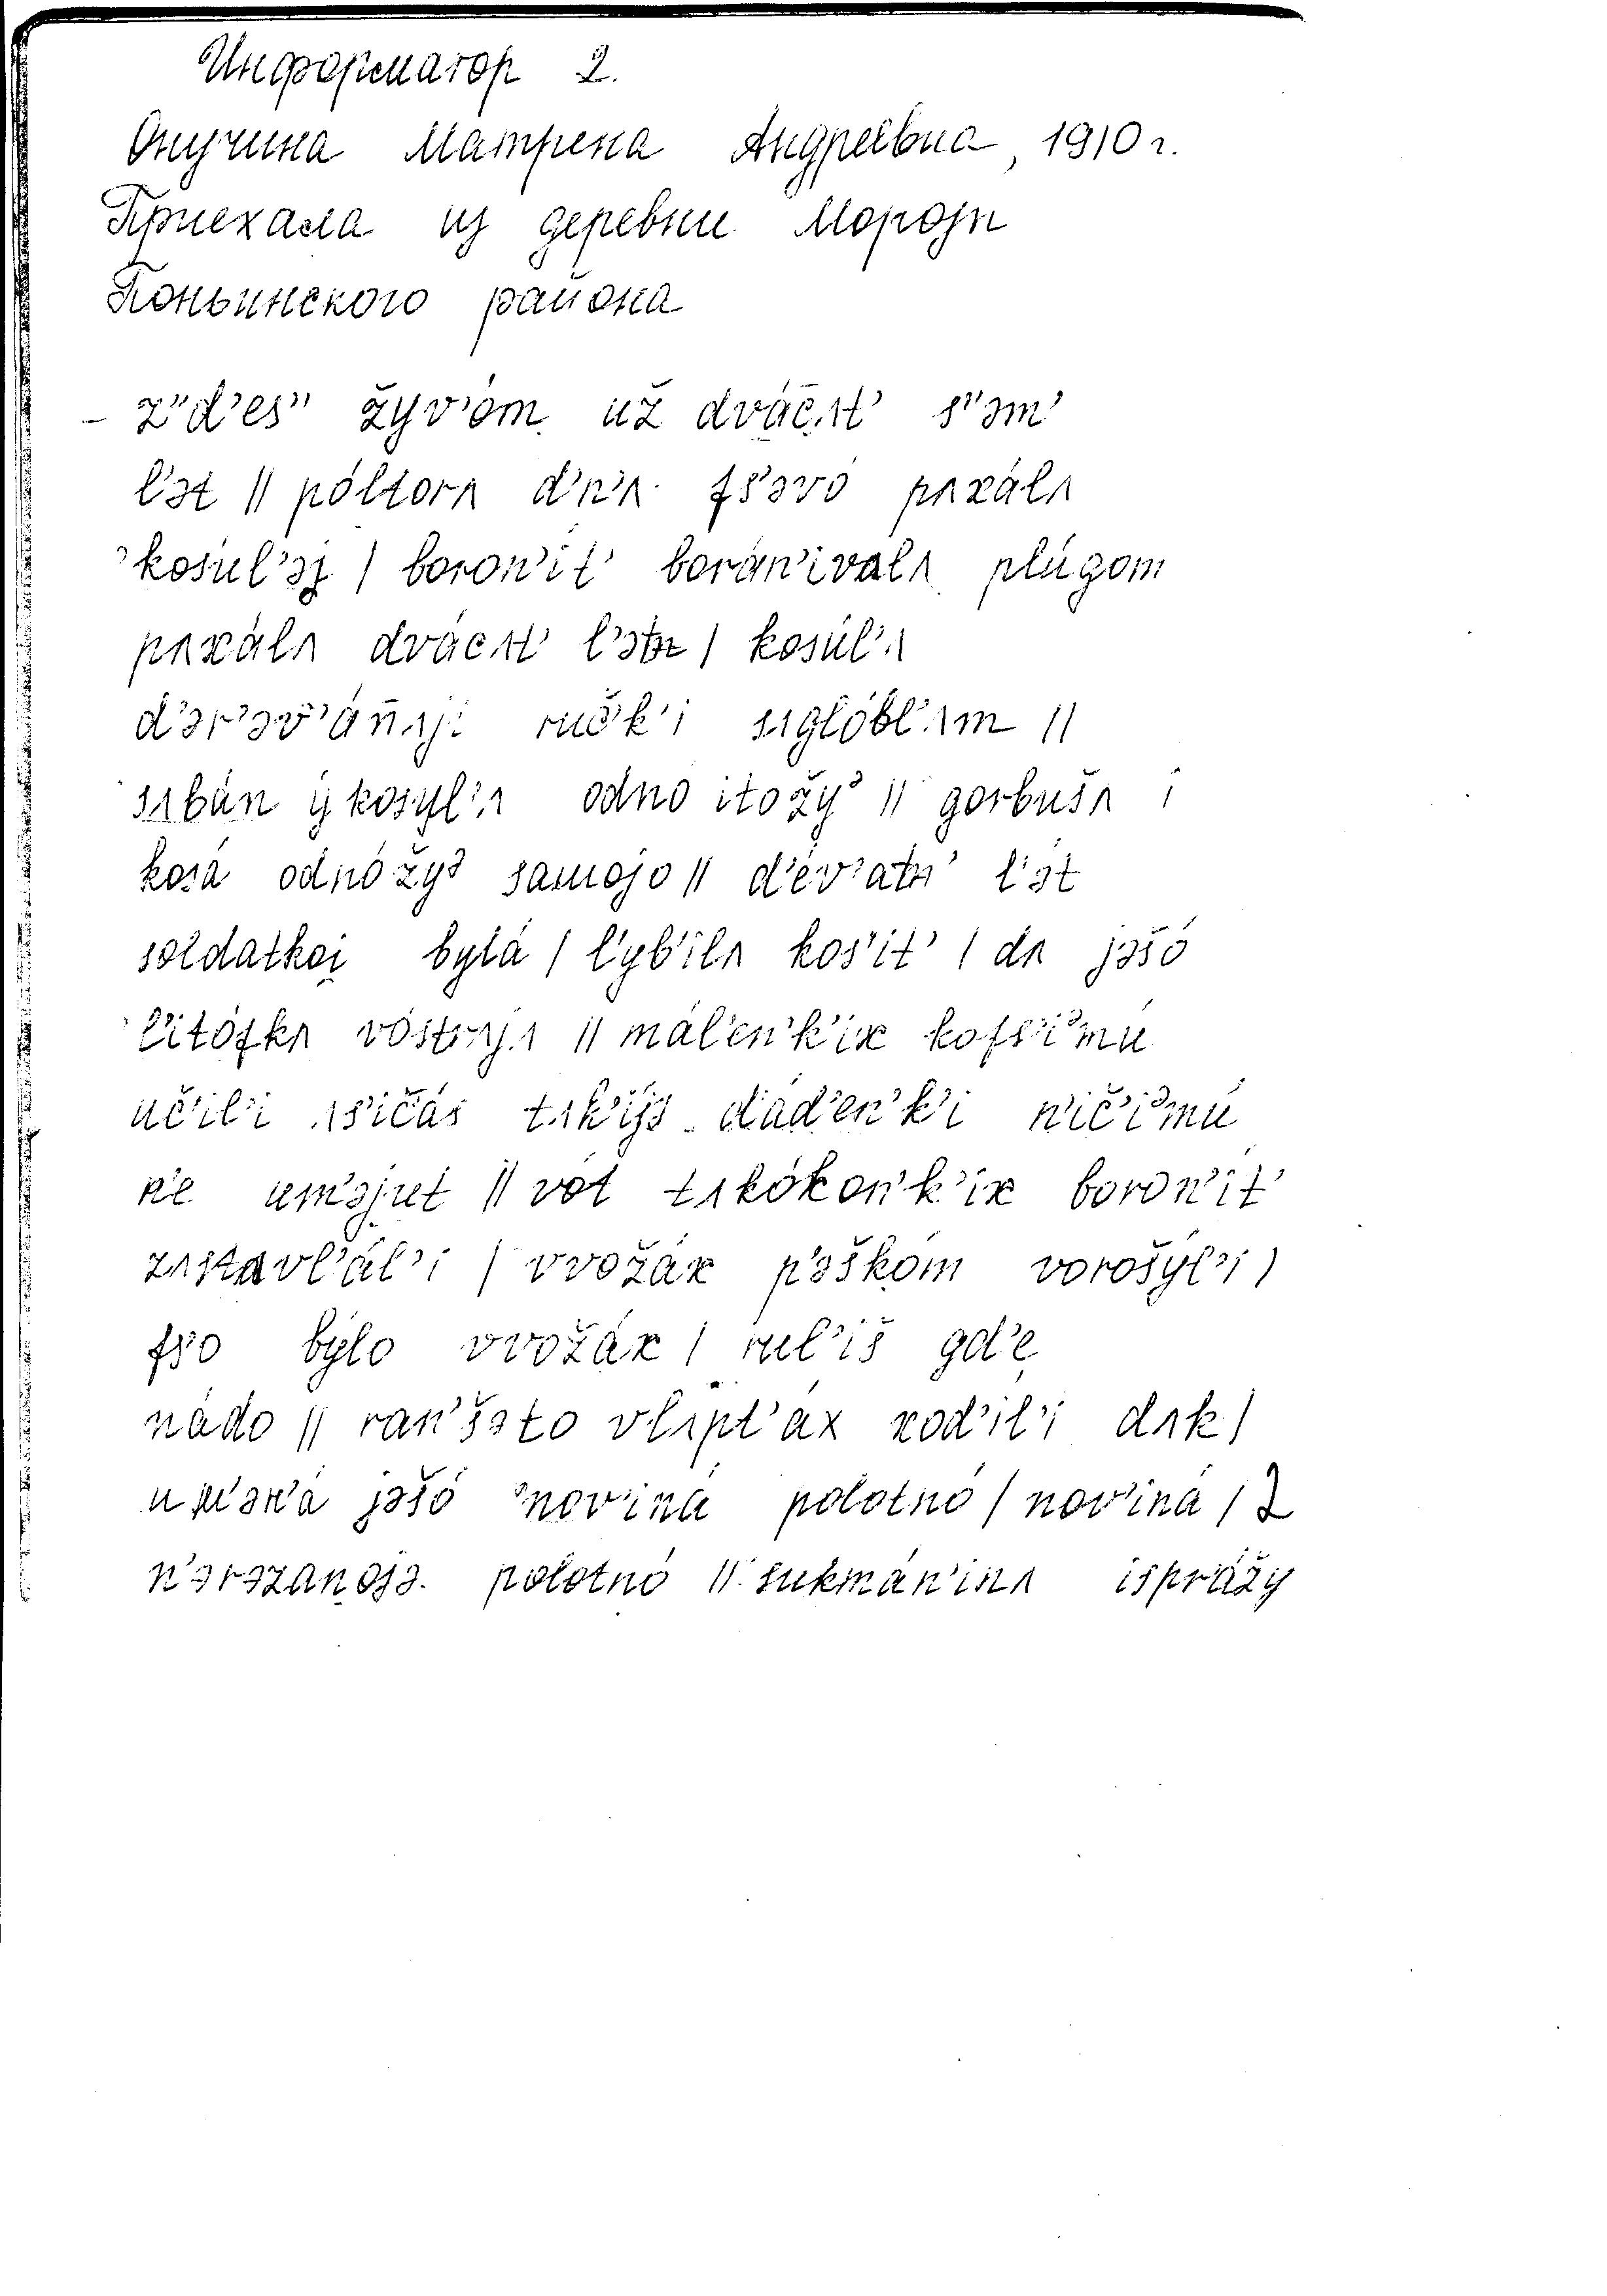 Информатор 2.
Онучина Матрена Андреевна, 1910 г.
Приехала из деревни Морозы
Поньинского района
– z"d'es" žyv'óm už dváčʌt' s'əm'
l'ət || póltorʌ d'n'ʌ fs'əvó pʌxálʌ
kosúl'əj | boron'ít' borán'ivalʌ plúgom
pʌxálʌ dvácʌt' l'ət | kosúl'ʌ
d'ər'əv'án̄ʌji ručk'i sʌglóbl'ʌm ||
sʌbán ykosyl'ʌ odno itožyə || gorbušʌ i
kosá odnóžyə samojo || d'év'atʌ' l'ət
soldatkoj bylá | l'yb'ílʌ kos'ít' | dʌ jəšó
l'itófkʌ vóstryjʌ || mál'en'k'ix kofs'iəmú
učíl'i ʌs'ičás tʌk'íjə dád'en'k'i n'ič'iəmú
n'e um'əjut || vot tʌkókon'k'ix boron'ít'
zʌstavl'ál'i | vvožáx p'əškóm vorošýl'i |
fs'o býlo vvožáx | rul'íš gd'e
nádo || ran'šəto vlʌpt'áx xod'íl'i dʌk |
um'ən'á jəšó nov'iná polotnó | nov'iná | 2
n'ər'əzanojə polotnó || sukmán'inʌ ispr'ážy